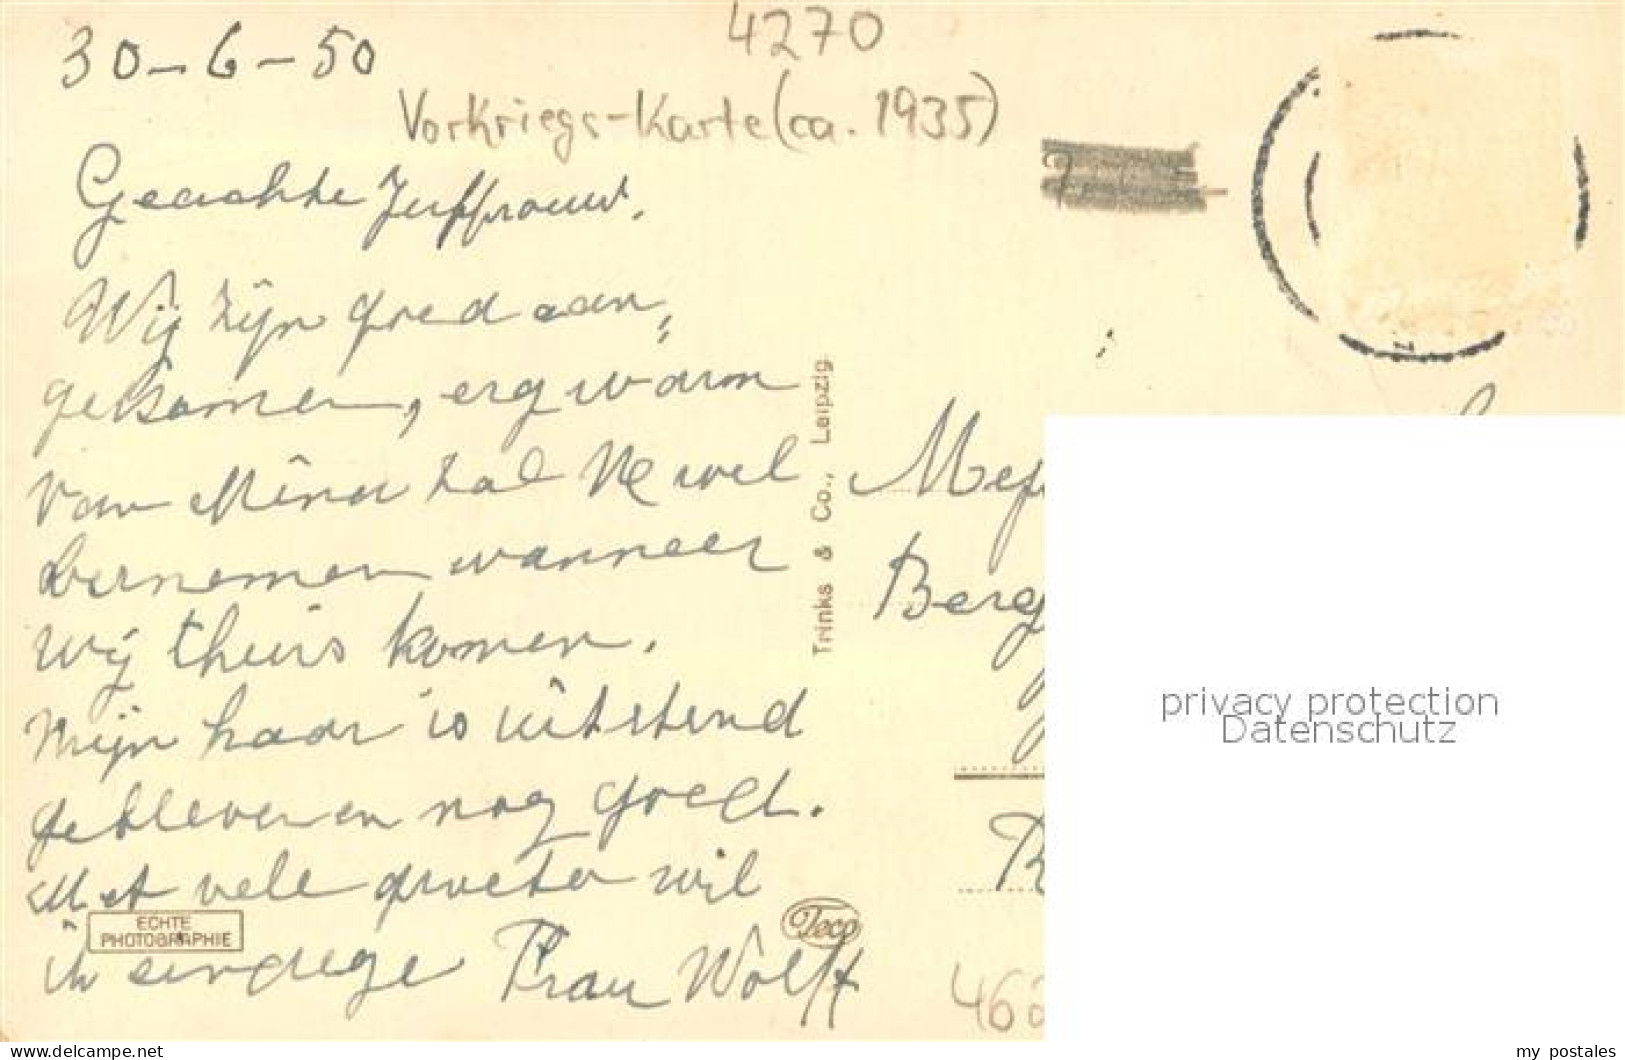 4270
30-6-50
Vorkriegs-Karte (ca. 1935)
Geachte Juffrouw.
Wij zijn goed aan,
gekomen, erg warm
van Mina zal U wel
vernemen wanneer
wij thuis komen.
Mijn haar is uitstend
gebleven en nog goed.
Met vele groeten wil
ik eindige Frau Wolff
ECHTE
PHOTOGRAPHIE
Trinks & Co., Leipzig.
Teco
Mej
Berg
R
46
privacy protection
Datenschutz
www.delcampe.net
my_postales